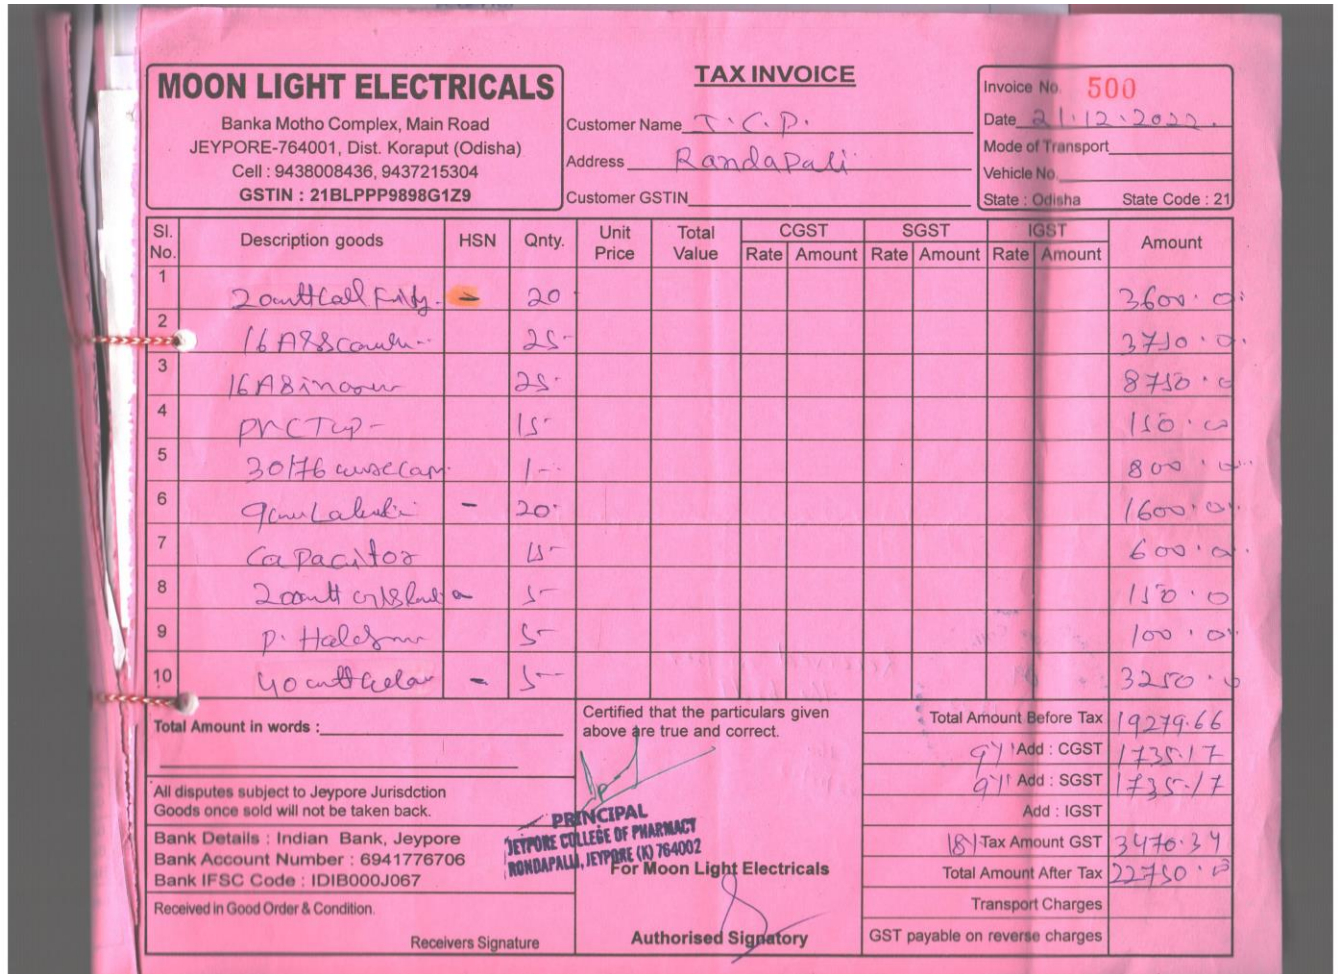 TAX INVOICE
MOON LIGHT ELECTRICALS
Banka Motho Complex, Main Road
JEYPORE-764001, Dist. Koraput (Odisha)
Cell : 9438008436, 9437215304
GSTIN : 21BLPPP9898G1Z9
Customer Name J.C.P.
Address Randapali
Customer GSTIN
Invoice No. 500
Date 21.12.2022.
Mode of Transport
Vehicle No.
State : Odisha State Code : 21
Sl. No. Description goods HSN Qnty. Unit Price Total Value CGST SGST IGST Amount
Rate Amount Rate Amount Rate Amount
1 - 20 3600.0
2 16A 25- 3750.0
3 16A 25- 8750.0
4 PVC 15- 150.00
5 1- 800.00
6 - 20 1600.00
7 Capacitor 15- 600.0
8 5- 150.0
9 P. 5- 100.0
10 40 - 5- 3250.0
Total Amount in words :
All disputes subject to Jeypore Jurisdction
Goods once sold will not be taken back.
Bank Details : Indian Bank, Jeypore
Bank Account Number : 6941776706
Bank IFSC Code : IDIB000J067
Received in Good Order & Condition.
Receivers Signature
Certified that the particulars given
above are true and correct.
PRINCIPAL
JEYPORE COLLEGE OF PHARMACY
RONDAPALLI, JEYPORE (K) 764002
For Moon Light Electricals
Authorised Signatory
Total Amount Before Tax 19279.66
9% Add : CGST 1735.17
9% Add : SGST 1735.17
Add : IGST
18% Tax Amount GST 3470.34
Total Amount After Tax 22750.0
Transport Charges
GST payable on reverse charges